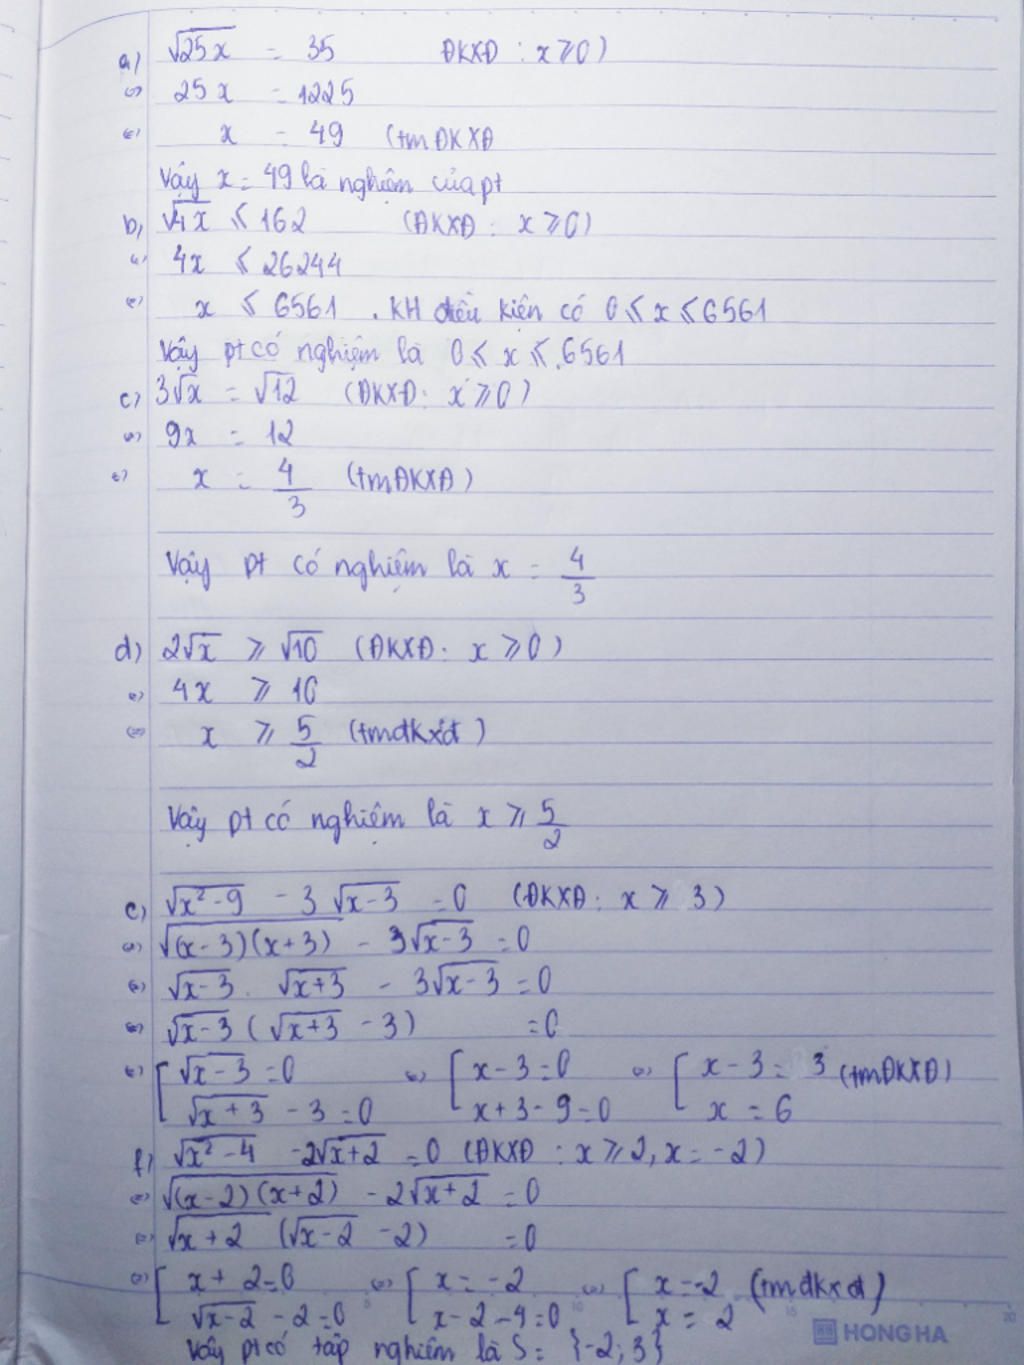 a) √25x = 35 ĐKXĐ : x ≥ 0)
⇔ 25x = 1225
⇔ x = 49 (tmĐKXĐ
Vậy x = 49 là nghiệm của pt
b, √4x ≤ 162 (ĐKXĐ : x ≥ 0)
⇔ 4x ≤ 26244
⇔ x ≤ 6561 . KH điều kiện có 0 ≤ x ≤ 6561
Vậy pt có nghiệm là 0 ≤ x ≤ 6561
c) 3√x = √12 (ĐKXĐ: x ≥ 0)
⇔ 9x = 12
⇔ x = 4/3 (tmĐKXĐ)
Vậy pt có nghiệm là x = 4/3
d) 2√x ≥ √10 (ĐKXĐ: x ≥ 0)
⇔ 4x ≥ 10
⇔ x ≥ 5/2 (tmđkxđ)
Vậy pt có nghiệm là x ≥ 5/2
e) √x²-9 - 3√x-3 = 0 (ĐKXĐ: x ≥ 3)
⇔ √(x-3)(x+3) - 3√x-3 = 0
⇔ √x-3 . √x+3 - 3√x-3 = 0
⇔ √x-3 (√x+3 - 3) = 0
⇔ [ √x-3 = 0 ⇔ [ x - 3 = 0 ⇔ [ x - 3 = 3 (tmĐKXĐ)
√x+3 - 3 = 0 x + 3 - 9 = 0 x = 6
f) √x²-4 - 2√x+2 = 0 (ĐKXĐ : x ≥ 2, x = -2)
⇔ √(x-2)(x+2) - 2√x+2 = 0
⇔ √x+2 (√x-2 - 2) = 0
⇔ [ x + 2 = 0 ⇔ [ x = -2 ⇔ [ x = -2 (tmđkxđ)
√x-2 - 2 = 0 x - 2 - 4 = 0 x = 2
Vậy pt có tập nghiệm là S = {-2; 3}
HONG HA